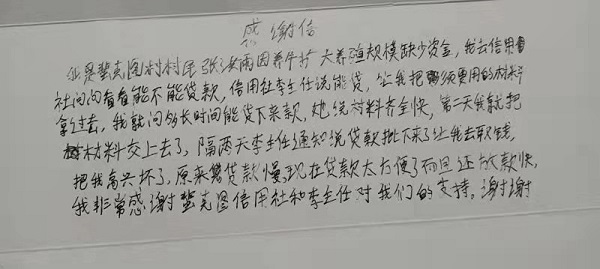 感谢信
业是蟹克图村村民张海雨因养牛扩大养殖规模缺少资金，我去信用
社问问看看能不能贷款，信用社李主任说能贷，让我把需要用的材料
拿过去，我就问多长时间能贷下来款，她说材料齐全快，第二天我就把
材料交上去了，隔两天李主任通知说贷款批下来了让我去取钱，
把我高兴坏了，原来贷款慢，现在贷款太方便了而且还放款快，
我非常感谢蟹克图信用社和李主任对我们的支持，谢谢